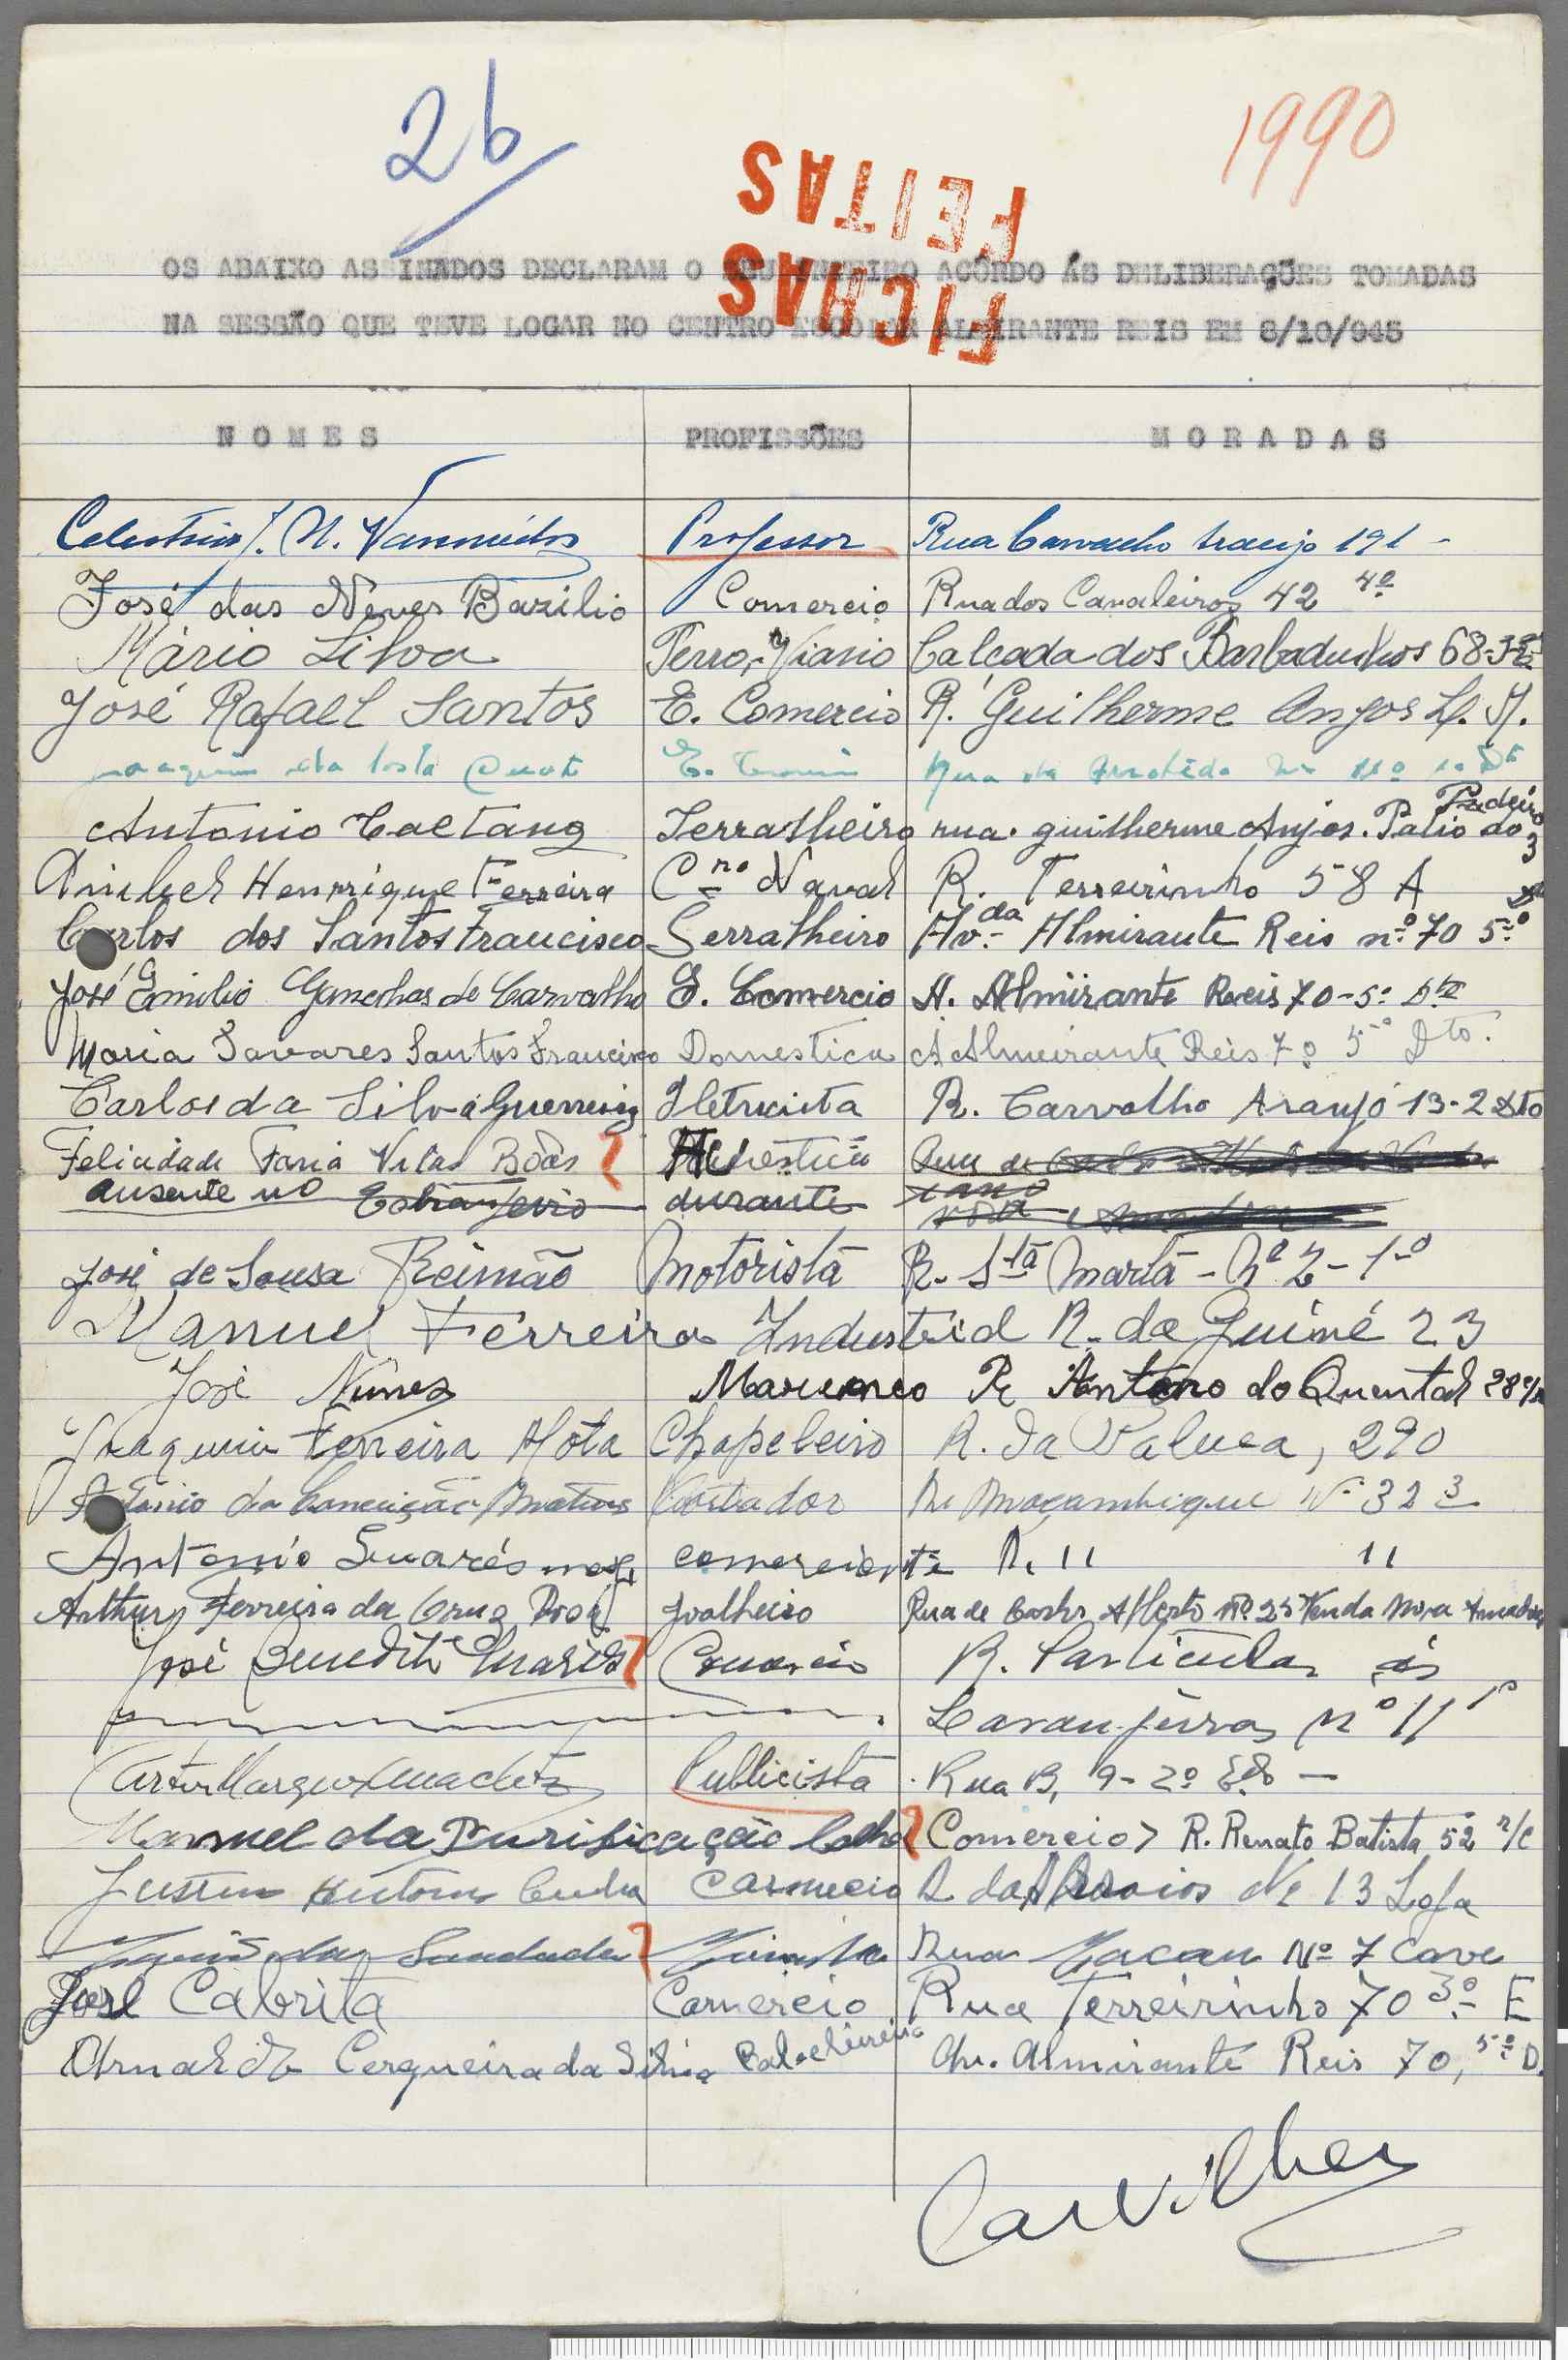 26
1990
FICHAS
FEITAS
OS ABAIXO ASSINADOS DECLARAM O SEU INTEIRO ACÔRDO ÁS DELIBERAÇÕES TOMADAS
NA SESSÃO QUE TEVE LOGAR NO CENTRO ESCOLAR ALMIRANTE REIS EM 8/10/945
NOMES PROFISSÕES MORADAS
Professor Rua Carvalho Araujo 191 -
José das Neves Bazilio Comercio Rua dos Cavaleiros 42 4º
Mário Silva Ferro-Viario Calçada dos Barbadinhos 68
José Rafael Santos E. Comercio R. Guilherme Anjos
da Costa
Antonio Caetano Serralheiro rua. guilherme Anjos. Patio do Padeiro 3
Henrique Ferreira Cno Naval R. Terreirinho 58 A
Carlos dos Santos Francisco Serralheiro Avda Almirante Reis nº 70 5º
José Emilio de Carvalho E. Comercio A. Almirante Reis 70-5º Dto
Maria Tavares Santos Francisco Domestica A Almirante Reis 70 5º Dto.
Carlos da Silva Guerreiro Iletricista R. Carvalho Araujo 13-2 Dto
Felicidade Faria Vilas Bôas
ausente no Estranjeiro durante
José de Sousa Reimão Motorista R. Sta Marta - Nº 2 - 1º
Manuel Ferreira Industrial R. da Guiné 23
José Nunes R Antero do Quental 28
Joaquim Ferreira Móta Chapeleiro R. da Palma, 290
António da Conceição Matias Cortador R. Moçambique Nº 32 3
Antonio comerciante R. 11 11
Arthur Ferreira da Cruz Rosa Joalheiro Rua de Carlos Alberto nº 25 Venda Nova Amadora
José R. Particular ás
Laranjeiras nº 11 1º
Artur Publicista Rua B, 9-2º Edo
Manuel da Purificação Comercio R. Renato Batista 52 r/c
Comercio 13 Loja
da Saudade Rua Macau Nº 7 cave
José Cabrita Comercio Rua Terreirinho 70 3º E
Arnaldo Cerqueira da Silva Av. Almirante Reis 70, 5º D.